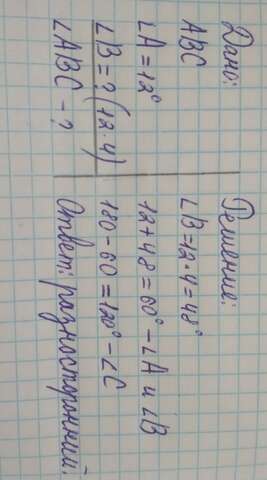 Дано:
ABC
∠A = 12°
∠B = ? (12·4)
∠ABC - ?
Решение:
∠B = 12·4 = 48°
12 + 48 = 60° - ∠A и ∠B
180 - 60 = 120° - ∠C
Ответ: разносторонний.